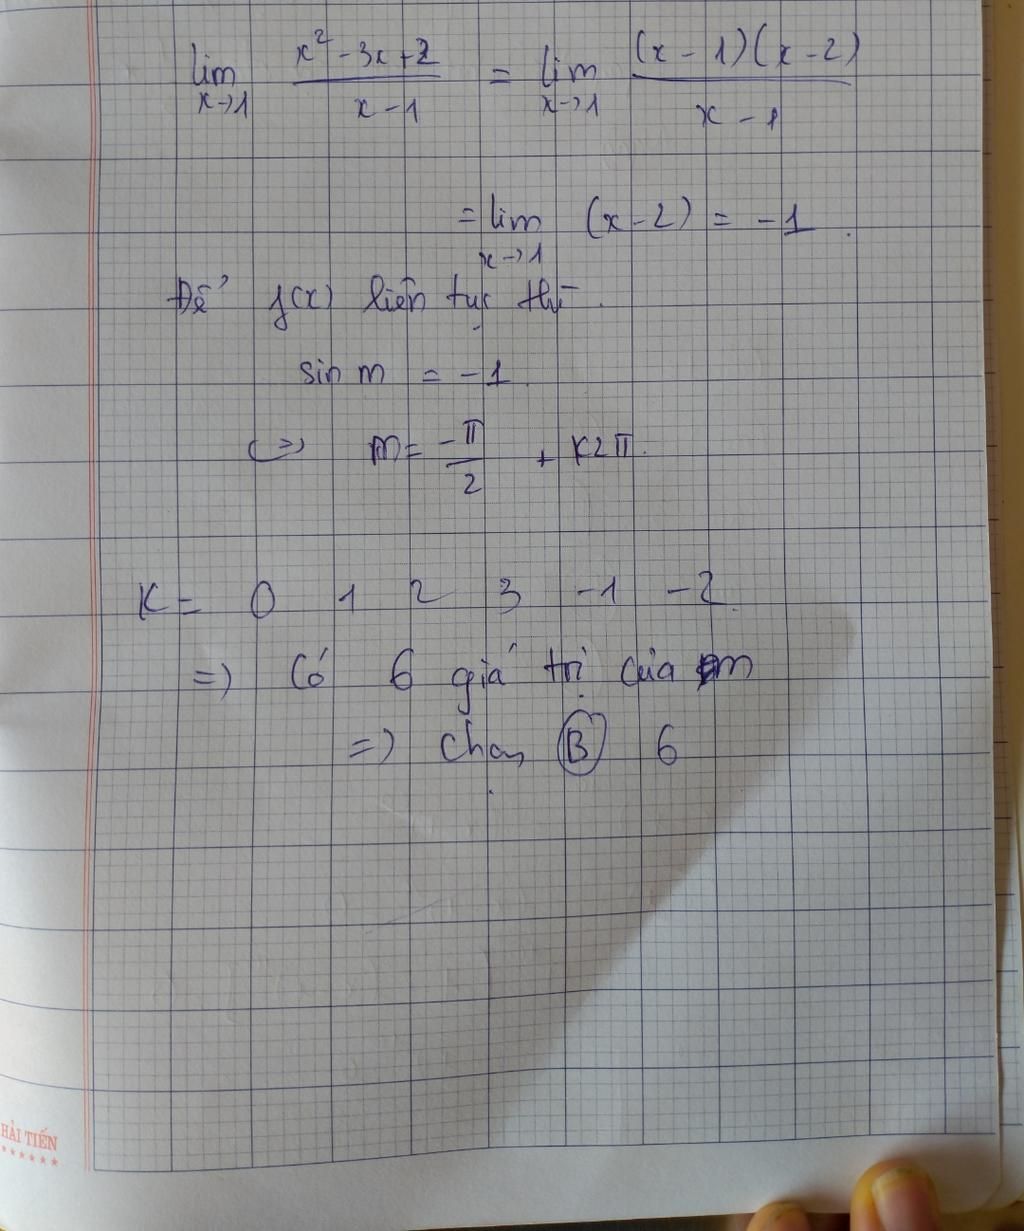 lim x→1 (x² - 3x + 2)/(x - 1) = lim x→1 ((x - 1)(x - 2))/(x - 1)
= lim x→1 (x - 2) = -1.
Để f(x) liên tục thì.
sin m = -1.
<=> m = -π/2 + k2π.
K = 0 1 2 3 -1 -2.
=> Có 6 giá trị của m
=> chọn B 6
HẢI TIẾN